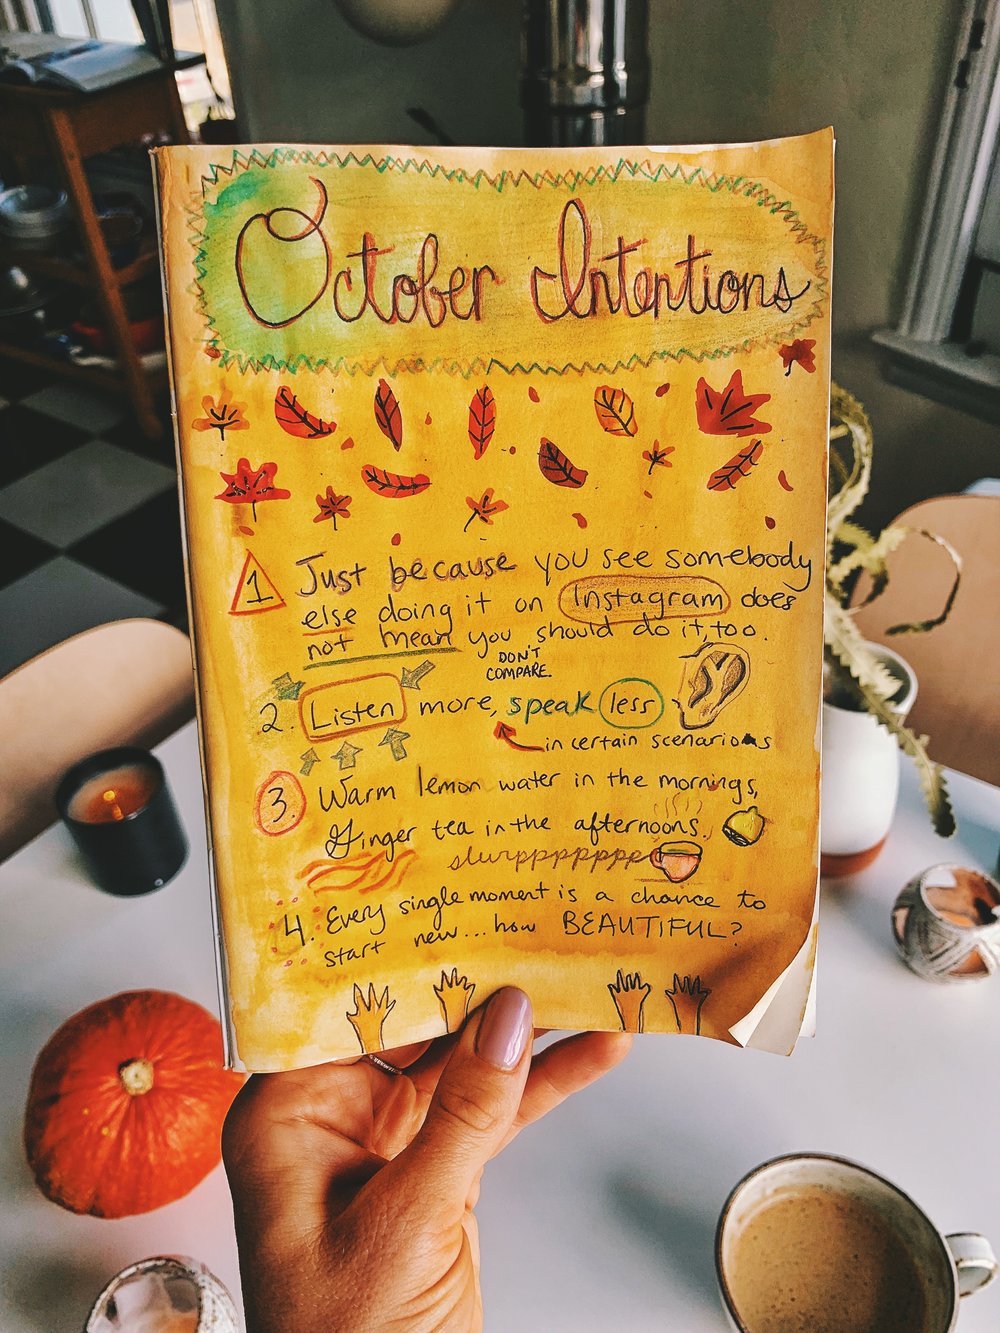 October Intentions
1 Just because you see somebody
else doing it on Instagram does
not mean you should do it, too.
DON'T
COMPARE.
2. Listen more, speak less
in certain scenarios
3. Warm lemon water in the mornings,
Ginger tea in the afternoons.
slurppppppppp
4. Every single moment is a chance to
start new... how BEAUTIFUL?